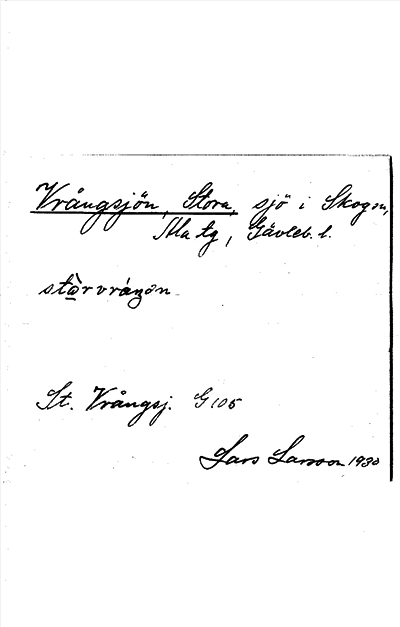 Vrångsjön, Stora, sjö i Skog sn,
Ala tg, Gävleb. l.
stòrvráŋön
St. Vrångsj. G 105
Lars Larsson 1930